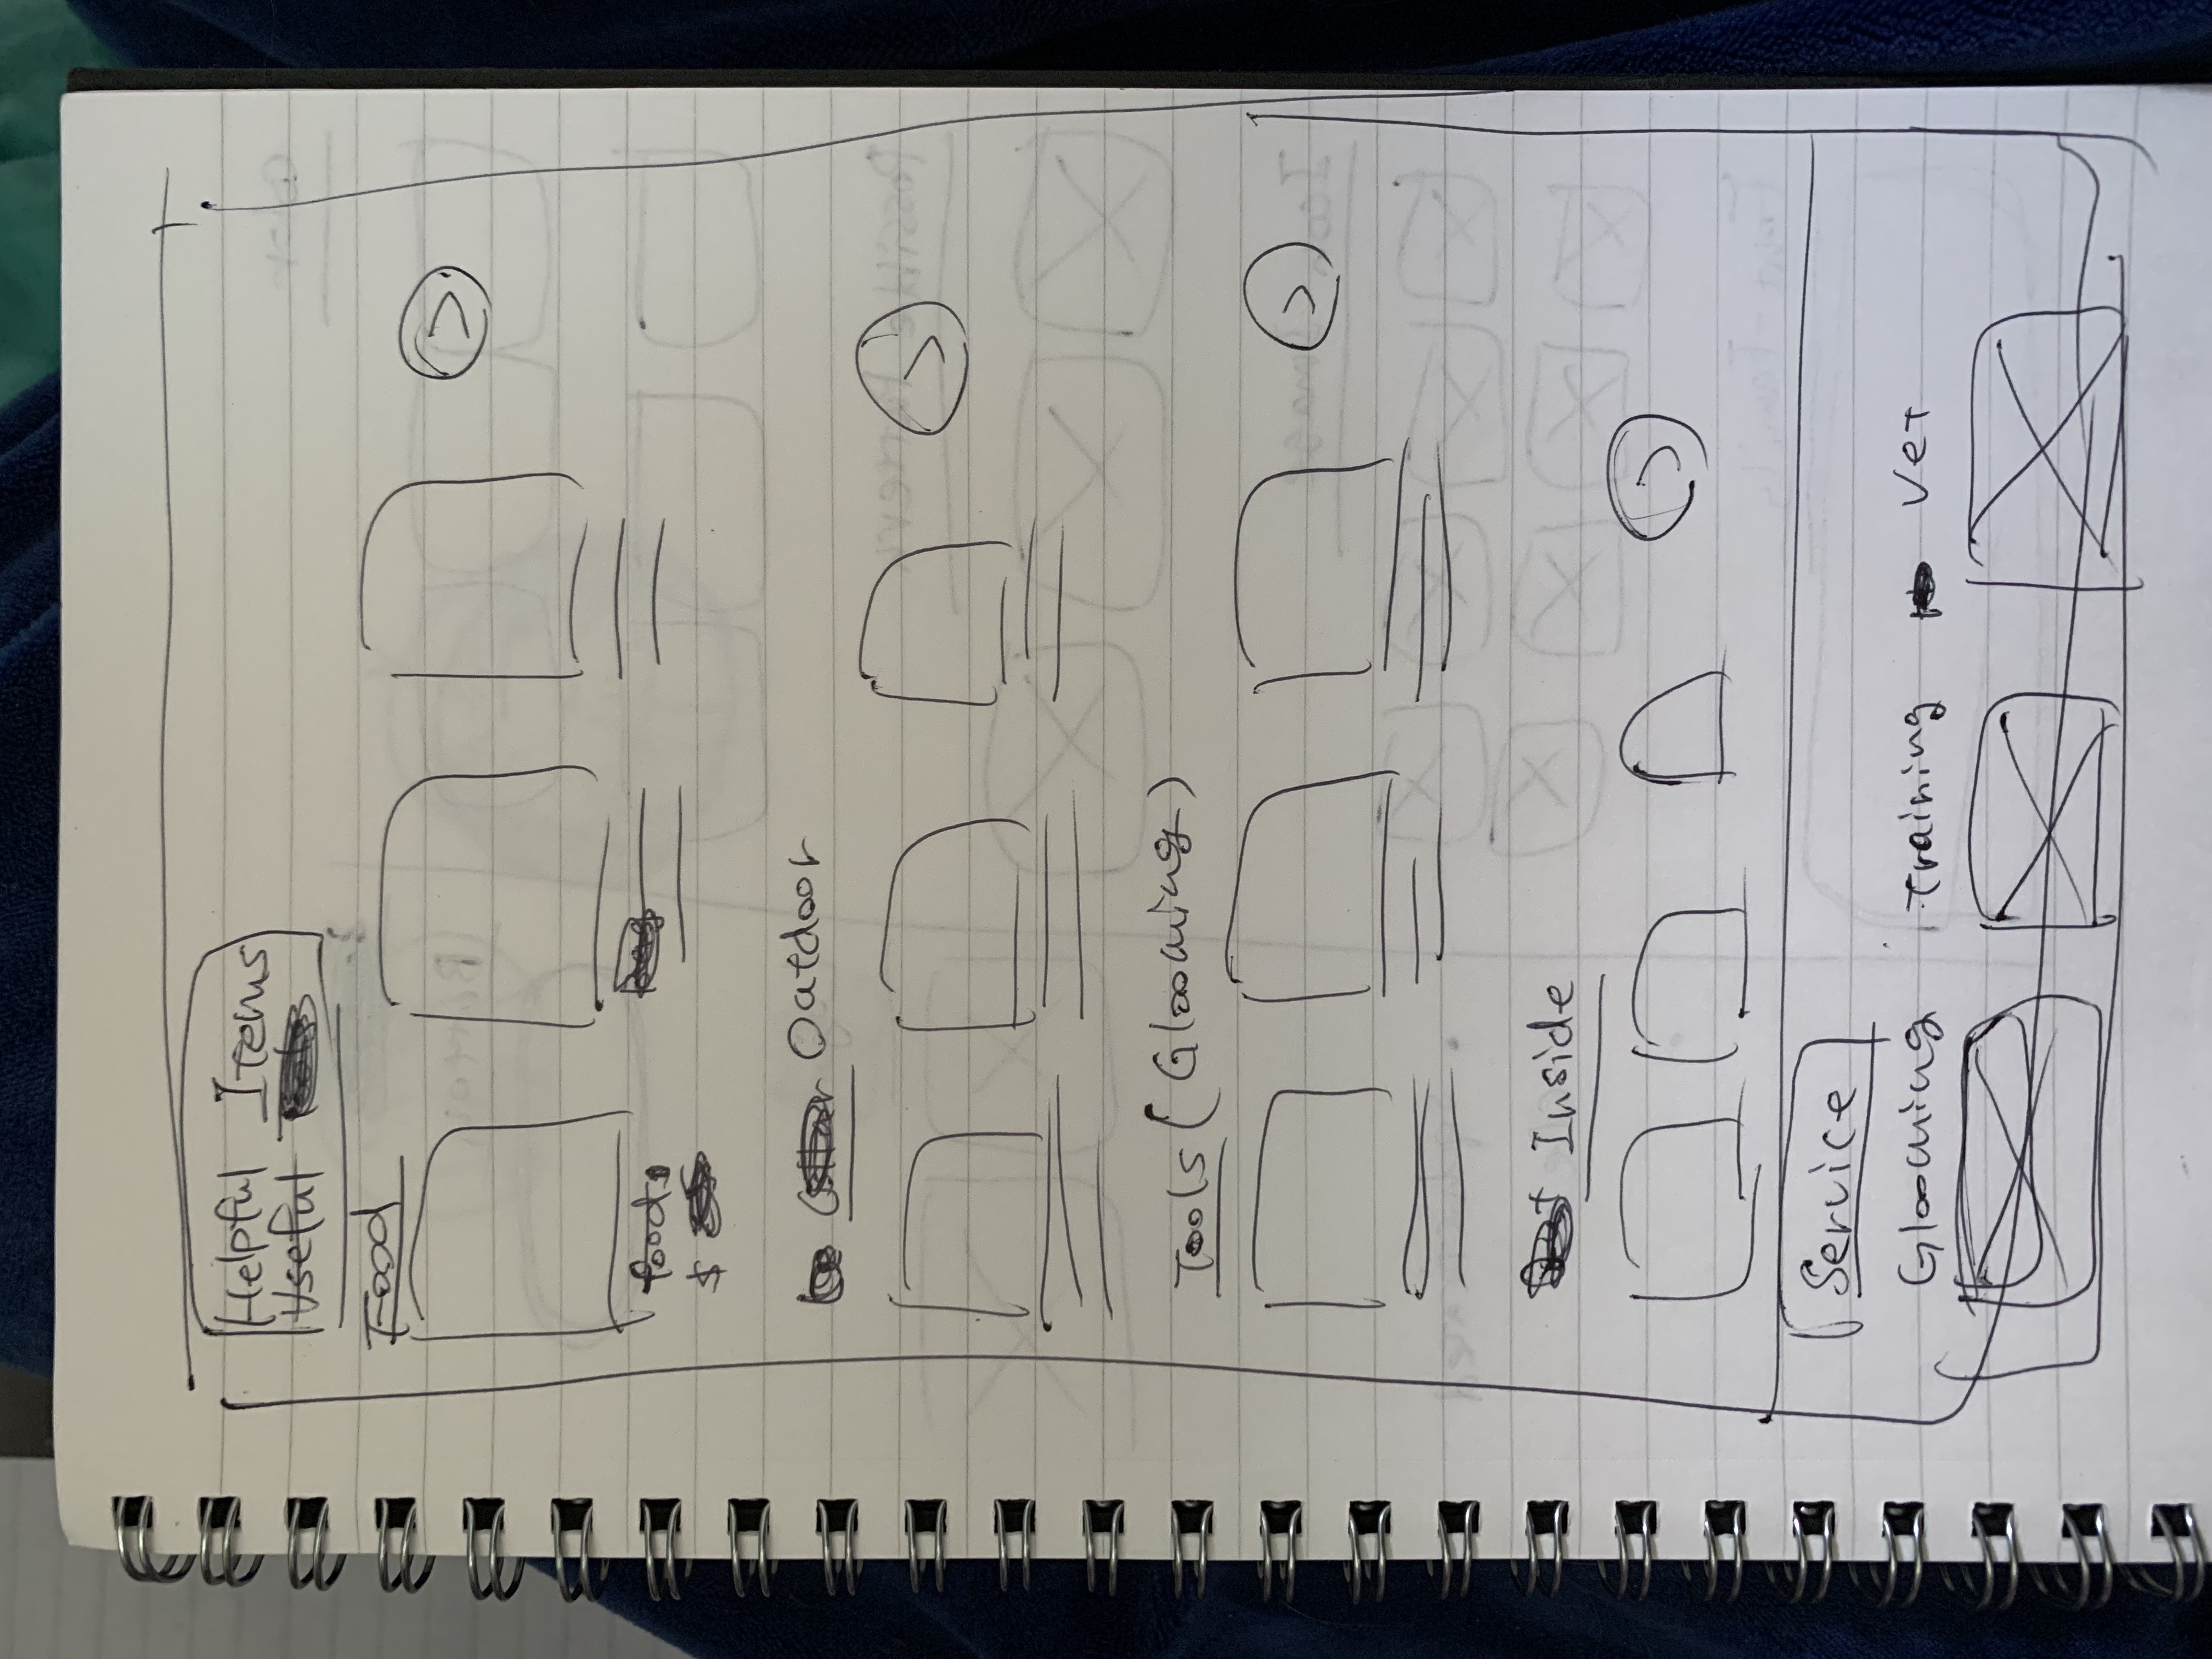 Helpful Items
Useful
Food
foods
$
Outdoor
Tools (Glooming)
Inside
Service
Glooming Training Vet